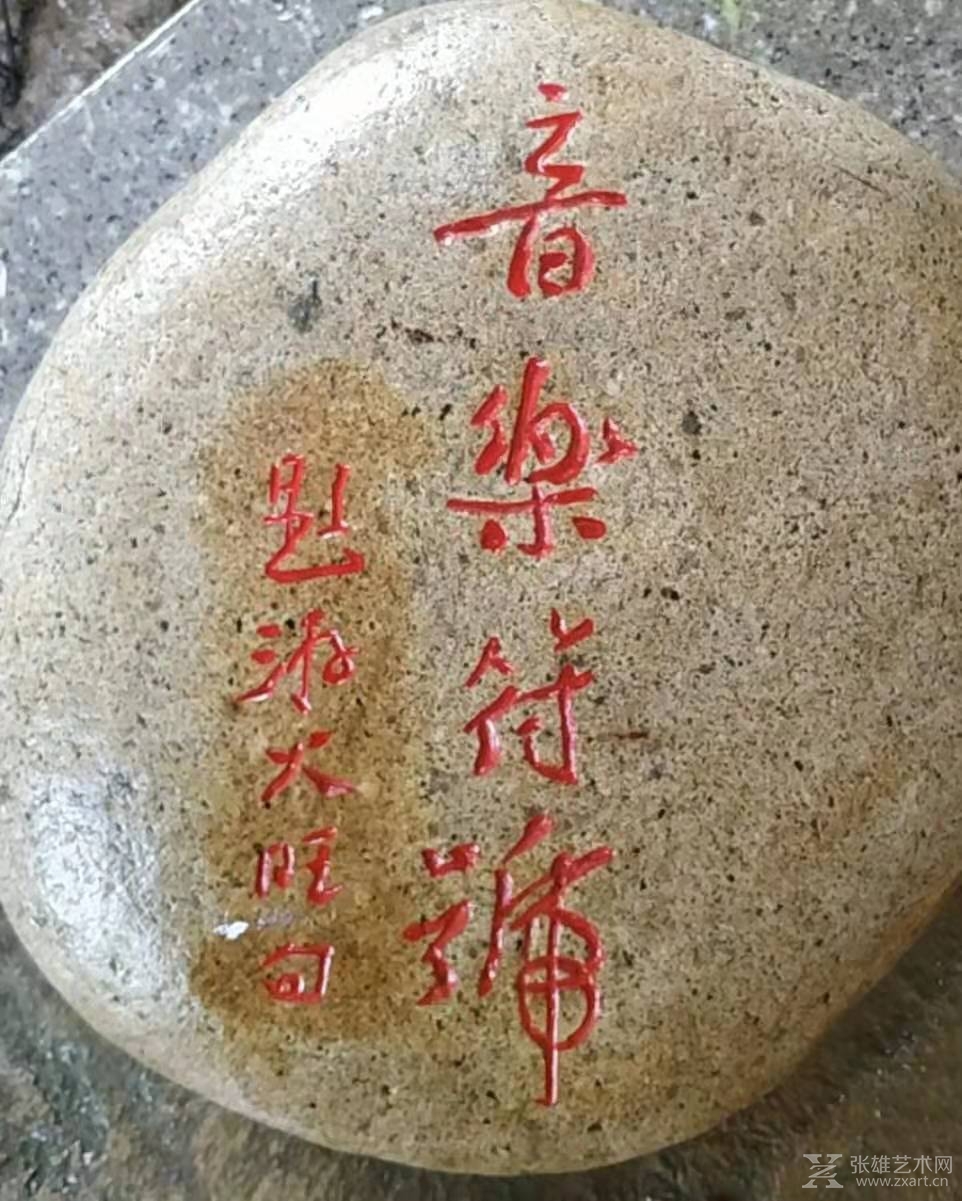 音樂符號
游大旺句
张雄艺术网
www.zxart.cn